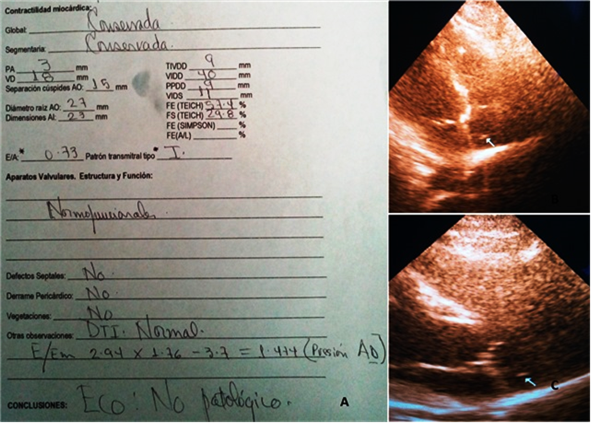 Contractilidad miocárdica:
Global: Conservada
Segmentaria: Conservada.
PA 3 mm
VD 18 mm
Separación cúspides AO: 15 mm
Diámetro raíz AO: 27 mm
Dimensiones AI: 23 mm
TIVDD 9 mm
VIDD 40 mm
PPDD 9 mm
VIDS 11 mm
FE (TEICH) 57.4 %
FS (TEICH) 29.8 %
FE (SIMPSON) %
FE(A/L) %
E/A: * 0.73 Patrón transmitral tipo * I.
Aparatos Valvulares. Estructura y Función:
Normofuncionales.
Defectos Septales: No.
Derrame Pericárdico: No.
Vegetaciones: No
Otras observaciones: DTI. Normal.
E/Em 2.94 x 1.76 - 3.7 = 1.474 (Presión AD)
CONCLUSIONES: Eco: No patológico.
A
B
C